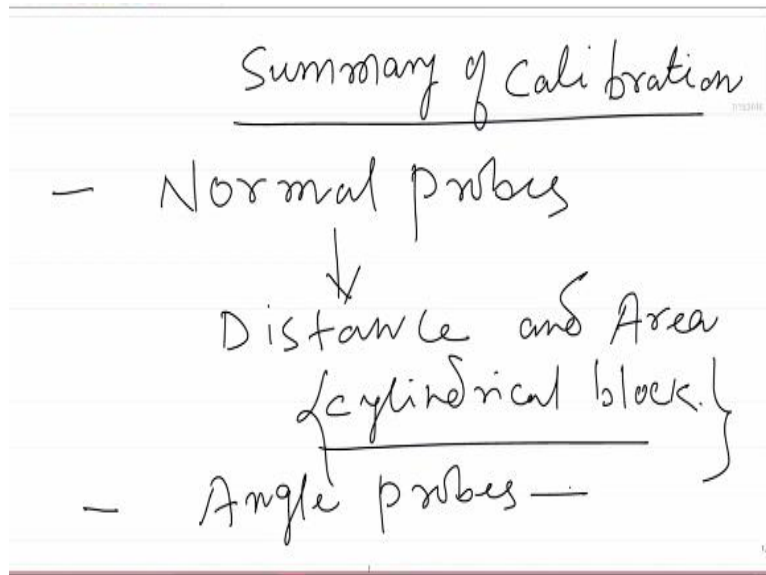 Summary of Calibration
- Normal probes
↓
Distance and Area
{cylindrical block.}
- Angle probes —